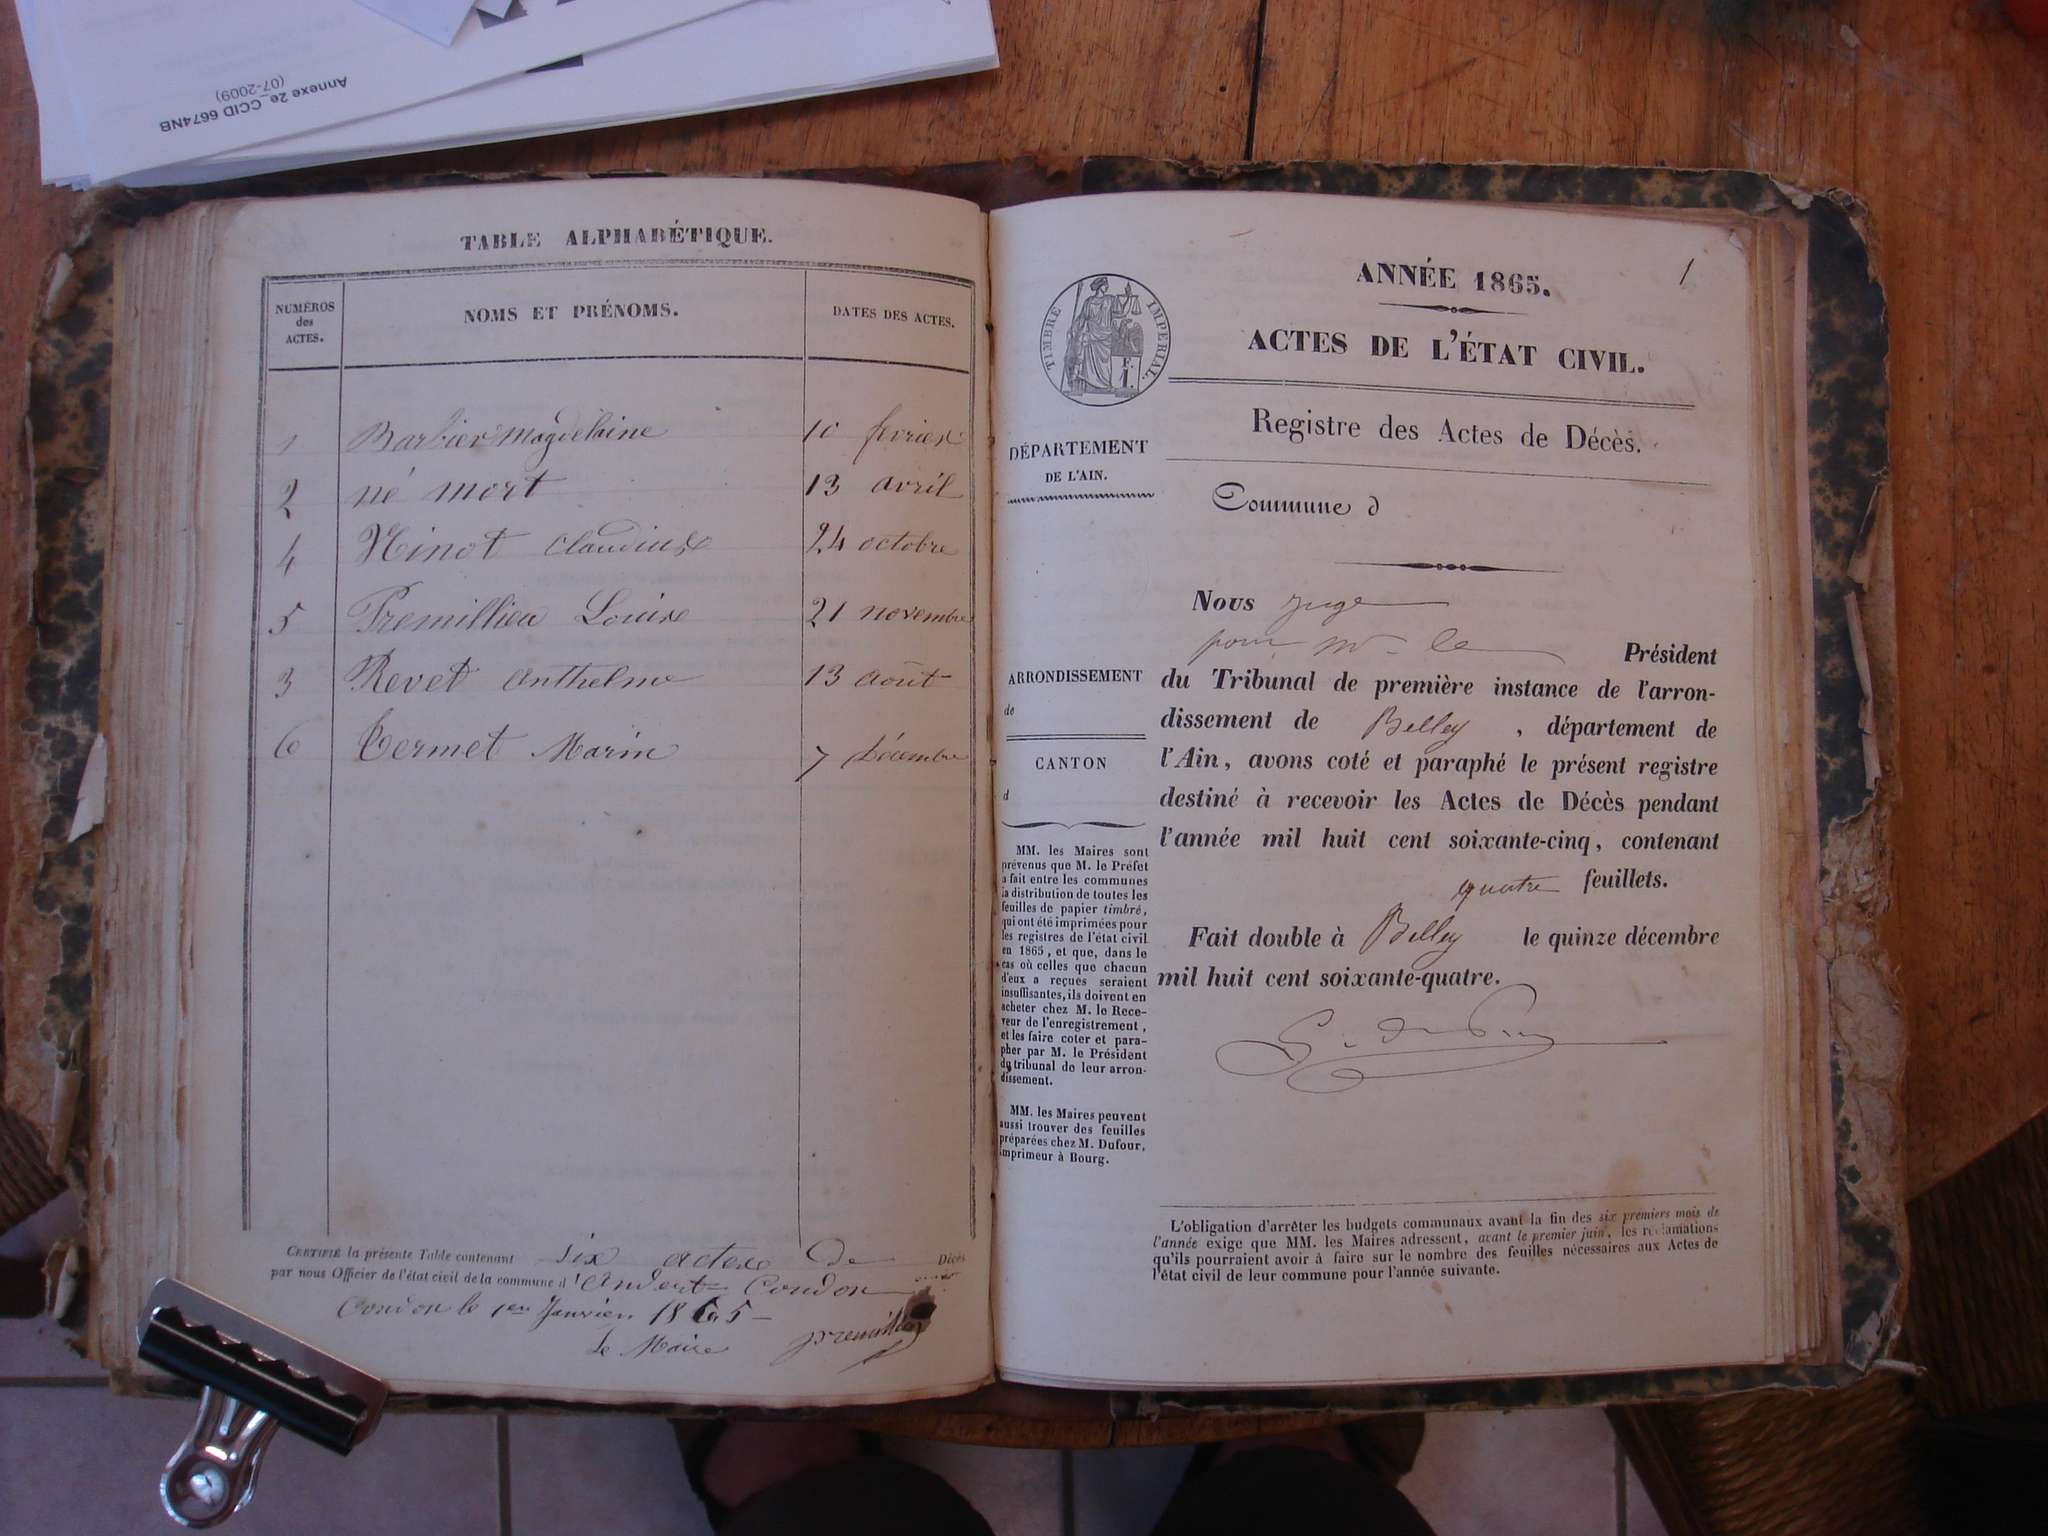 Annexe 2e_CCID 6674NB
(07-2009)
TABLE ALPHABÉTIQUE.
NUMÉROS des ACTES.
NOMS ET PRÉNOMS.
DATES DES ACTES.
1 Barbier Magdelaine 10 fevrier
2 né mort 13 avril
4 Ninot Claudius 24 octobre
5 Premillieu Louise 21 novembre
3 Revet Anthelme 13 août
6 Termet Marin 7 Décembre
CERTIFIÉ la présente Table contenant six actes de Décès
par nous Officier de l'état civil de la commune d'Andert-Condon
Condon le 1er Janvier 1865
Le Maire
1
ANNÉE 1865.
ACTES DE L'ÉTAT CIVIL.
TIMBRE IMPERIAL.
Registre des Actes de Décès.
DÉPARTEMENT
DE L'AIN.
Commune d
ARRONDISSEMENT
de
CANTON
d
MM. les Maires sont
prévenus que M. le Préfet
a fait entre les communes
la distribution de toutes les
feuilles de papier timbré,
qui ont été imprimées pour
les registres de l'état civil
en 1865, et que, dans le
cas où celles que chacun
d'eux a reçues seraient
insuffisantes, ils doivent en
acheter chez M. le Rece-
veur de l'enregistrement,
et les faire coter et para-
pher par M. le Président
du tribunal de leur arron-
dissement.
MM. les Maires peuvent
aussi trouver des feuilles
préparées chez M. Dufour,
imprimeur à Bourg.
Nous juge
pour Mr le Président
du Tribunal de première instance de l'arron-
dissement de Belley, département de
l'Ain, avons coté et paraphé le présent registre
destiné à recevoir les Actes de Décès pendant
l'année mil huit cent soixante-cinq, contenant
quatre feuillets.
Fait double à Belley le quinze décembre
mil huit cent soixante-quatre.
L'obligation d'arrêter les budgets communaux avant la fin des six premiers mois de
l'année exige que MM. les Maires adressent, avant le premier juin, les réclamations
qu'ils pourraient avoir à faire sur le nombre des feuilles nécessaires aux Actes de
l'état civil de leur commune pour l'année suivante.